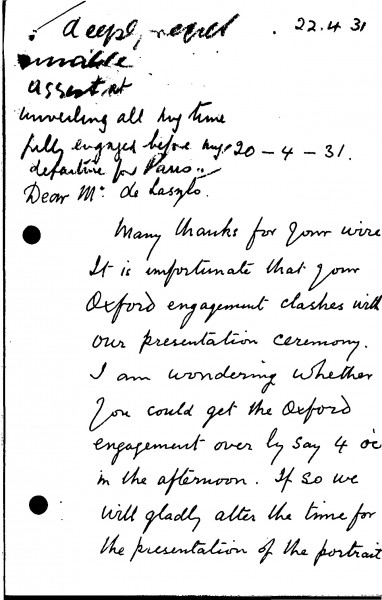 deeply regret 22.4 31
unable
assist at
unveiling all my time
fully engaged before my 20-4-31.
departure for Paris..
Dear Mr. de Laszlo.
Many thanks for your wire
It is unfortunate that your
Oxford engagement clashes with
our presentation ceremony.
I am wondering whether
you could get the Oxford
engagement over by say 4 oc
in the afternoon. If so we
will gladly alter the time for
the presentation of the portrait